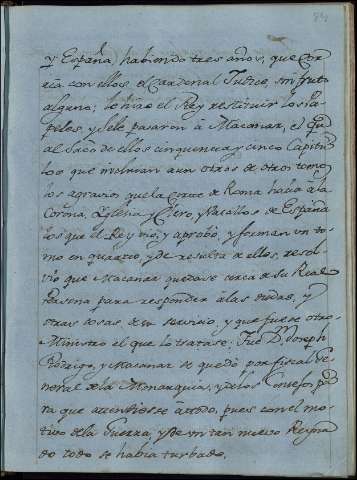 y España, habiendo tres años, que cor-
ria con ellos, el Cardenal Judice, sin fruto
alguno; lo hizo el Rey restituir los Pa-
peles, y se le pasaron à Macanaz, el qu-
al Sacò de ellos cinquenta y cinco Capitu-
los que incluian aun otros de otros tomo
los agravios que la Corte de Roma hacia à la
Corona, Iglesia y Clero, y Vasallos de España
los que el Rey viò, y aprobò, y forman un to-
mo en quarto, y de resulta de ellos, resol-
viò que Macanaz quedase cerca de su Real
Persona para responder à las dudas, y
otras cosas, de su servicio, y que fuese otro
Ministro el que lo tratase: Fue Dn. Joseph
Rodrigo, y Macanaz se quedò por fiscal Ge-
neral de la Monarquia, y de los Consejos, pa
ra que atendiese à todo, pues con el mo-
tivo de la Guerra, y de un tan nuevo Reyna
do todo se habia turbado.